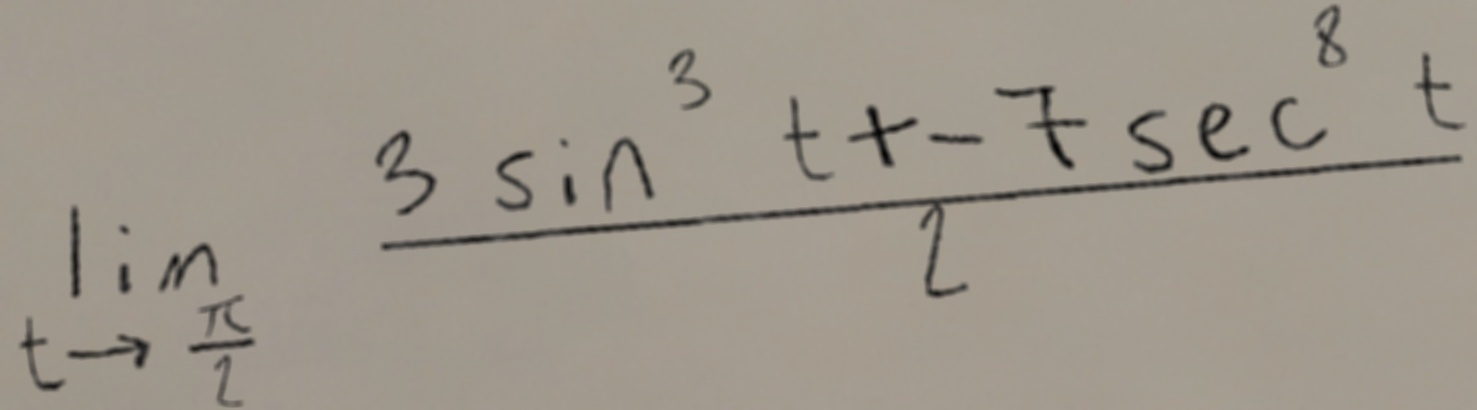 lim t→π/2 (3 sin³ t + -7 sec⁸ t)/2